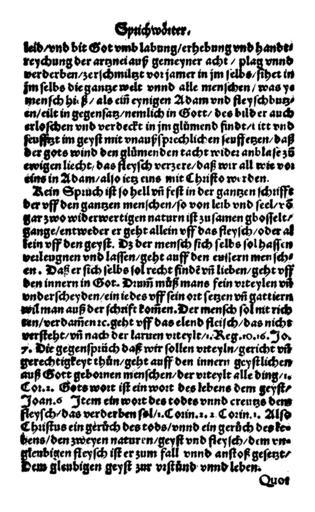 Sprichwörter.
leid/vnd bit Got vmb labung/erhebung vnd handt⸗
reychung der artznei auß gemeyner acht / plag vnnd
verderben/zerschmiltzt vor jamer in jm selbs/sihet in
jm selbs die gantze welt vnnd alle menschen / was ye
mensch heißt / als eiñ eynigen Adam vnd fleyschbutz⸗
en/eilt in gegensatz/nemlich in Gott/des bild er auch
erloschen vnd verdeckt in jm glümend findet/itt vnd
seufftzt im geyst mit vnaußsprechlichen seufftzen/daß
der gots wind den glümenden tacht wider anblase zů
ewigen liecht/das fleysch verzere/daß wir all wie vor
eins in Adam/also ietz eins mit Christo werden.
Kein Spruch ist so hell vñ fest in der gantzen schrifft
der vff den gantzen menschen/so von leib vnd seel/võ
gar zwo widerwertigen naturn ist zusamen gbosselt/
gange/entweder er geht allein vff das fleysch/oder al
lein vff den geyst. Dz der mensch sich selbs sol hassen
verleugnen vnd lassen/geht auff den eussern mensch⸗
en. Daß er sich selbs sol recht findē vñ lieben/geht vff
den innern in Got. Drum̃ můß mans fein vrteylen vñ
vnderscheyden/ein iedes vff sein ort setzen vñ gattiern
wil man auß der schrift kom̃en. Der mensch sol nit rich
ten/verdam̃en ꝛc. geht vff das elend fleisch/das nicht
versteht/vñ nach der laruen vrteylt/1. Reg. 10. 16. Jo.
7. Die gegensprüch daß wir sollen vrteyln/gericht vñ
gerechtigkeyt thůn/geht auff den innern geystlichen
auß Gott gebornen menschen/der vrteylt alle ding/1.
Cor. 2. Gots wort ist ein wort des lebens dem geyst/
Joan. 6 Item ein wort des todes vnnd creutzs dem
fleysch/das verderben sol/1. Corin. 1. 2 Corin. 1. Also
Christus ein gerüch des tods/vnnd ein gerüch des le⸗
bens/den zweyen naturen/geyst vnd fleysch/dem vn⸗
gleubigen fleysch ist er zum fall vnnd anstoß gesetzt/
Dem gleubigen geyst zur vrstünd vnnd leben.
Quot